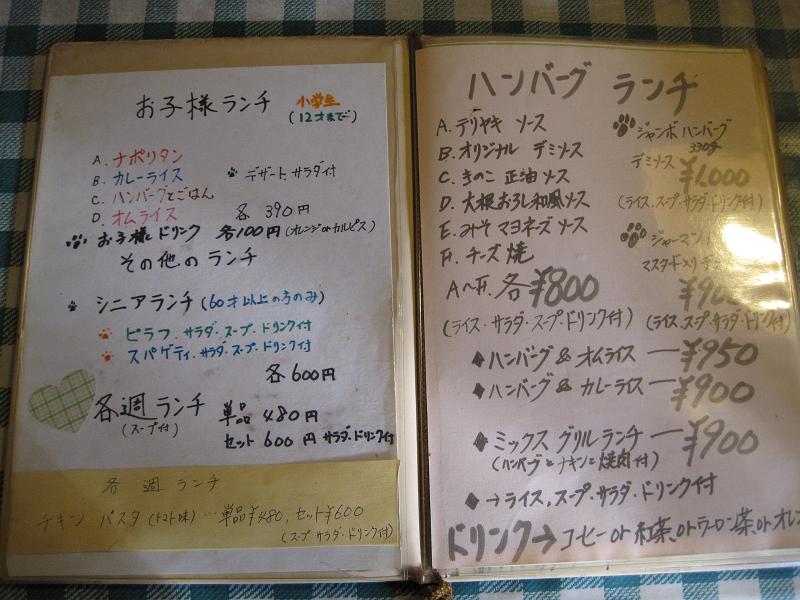 お子様ランチ 小学生
(12才まで)
A. ナポリタン
B. カレーライス デザート、サラダ付
C. ハンバーグとごはん
D. オムライス 各 390円
お子様ドリンク 各100円(オレンジorカルピス)
その他のランチ
シニアランチ(60才以上の方のみ)
ピラフ、サラダ・スープ・ドリンク付
スパゲティ、サラダ・スープ・ドリンク付
各600円
各週ランチ 単品 480円
(スープ付) セット 600円 サラダ・ドリンク付
各週ランチ
チキン パスタ(トマト味)…単品¥480、セット¥600
(スープ サラダ・ドリンク付)
ハンバーグ ランチ
A. テリヤキ ソース
B. オリジナル デミソース
C. きのこ 正油 ソース
D. 大根おろし和風ソース
E. みそ マヨネーズ ソース
F. チーズ 焼
A〜F. 各¥800
(ライス・サラダ・スープ・ドリンク付)
ジャンボ ハンバーグ
330g
デミソース ¥1,000
(ライス・スープ・サラダ・ドリンク付)
ジャーマン
マスタード入り
(ライス、スープ・サラダ・ドリンク付)
ハンバーグ & オムライス ー¥950
ハンバーグ & カレーライス ー¥900
ミックス グリル ランチー¥900
(ハンバーグとチキンと焼肉付)
→ライス、スープ・サラダ・ドリンク付
ドリンク→コーヒー or 紅茶、or ウーロン茶、or オレン